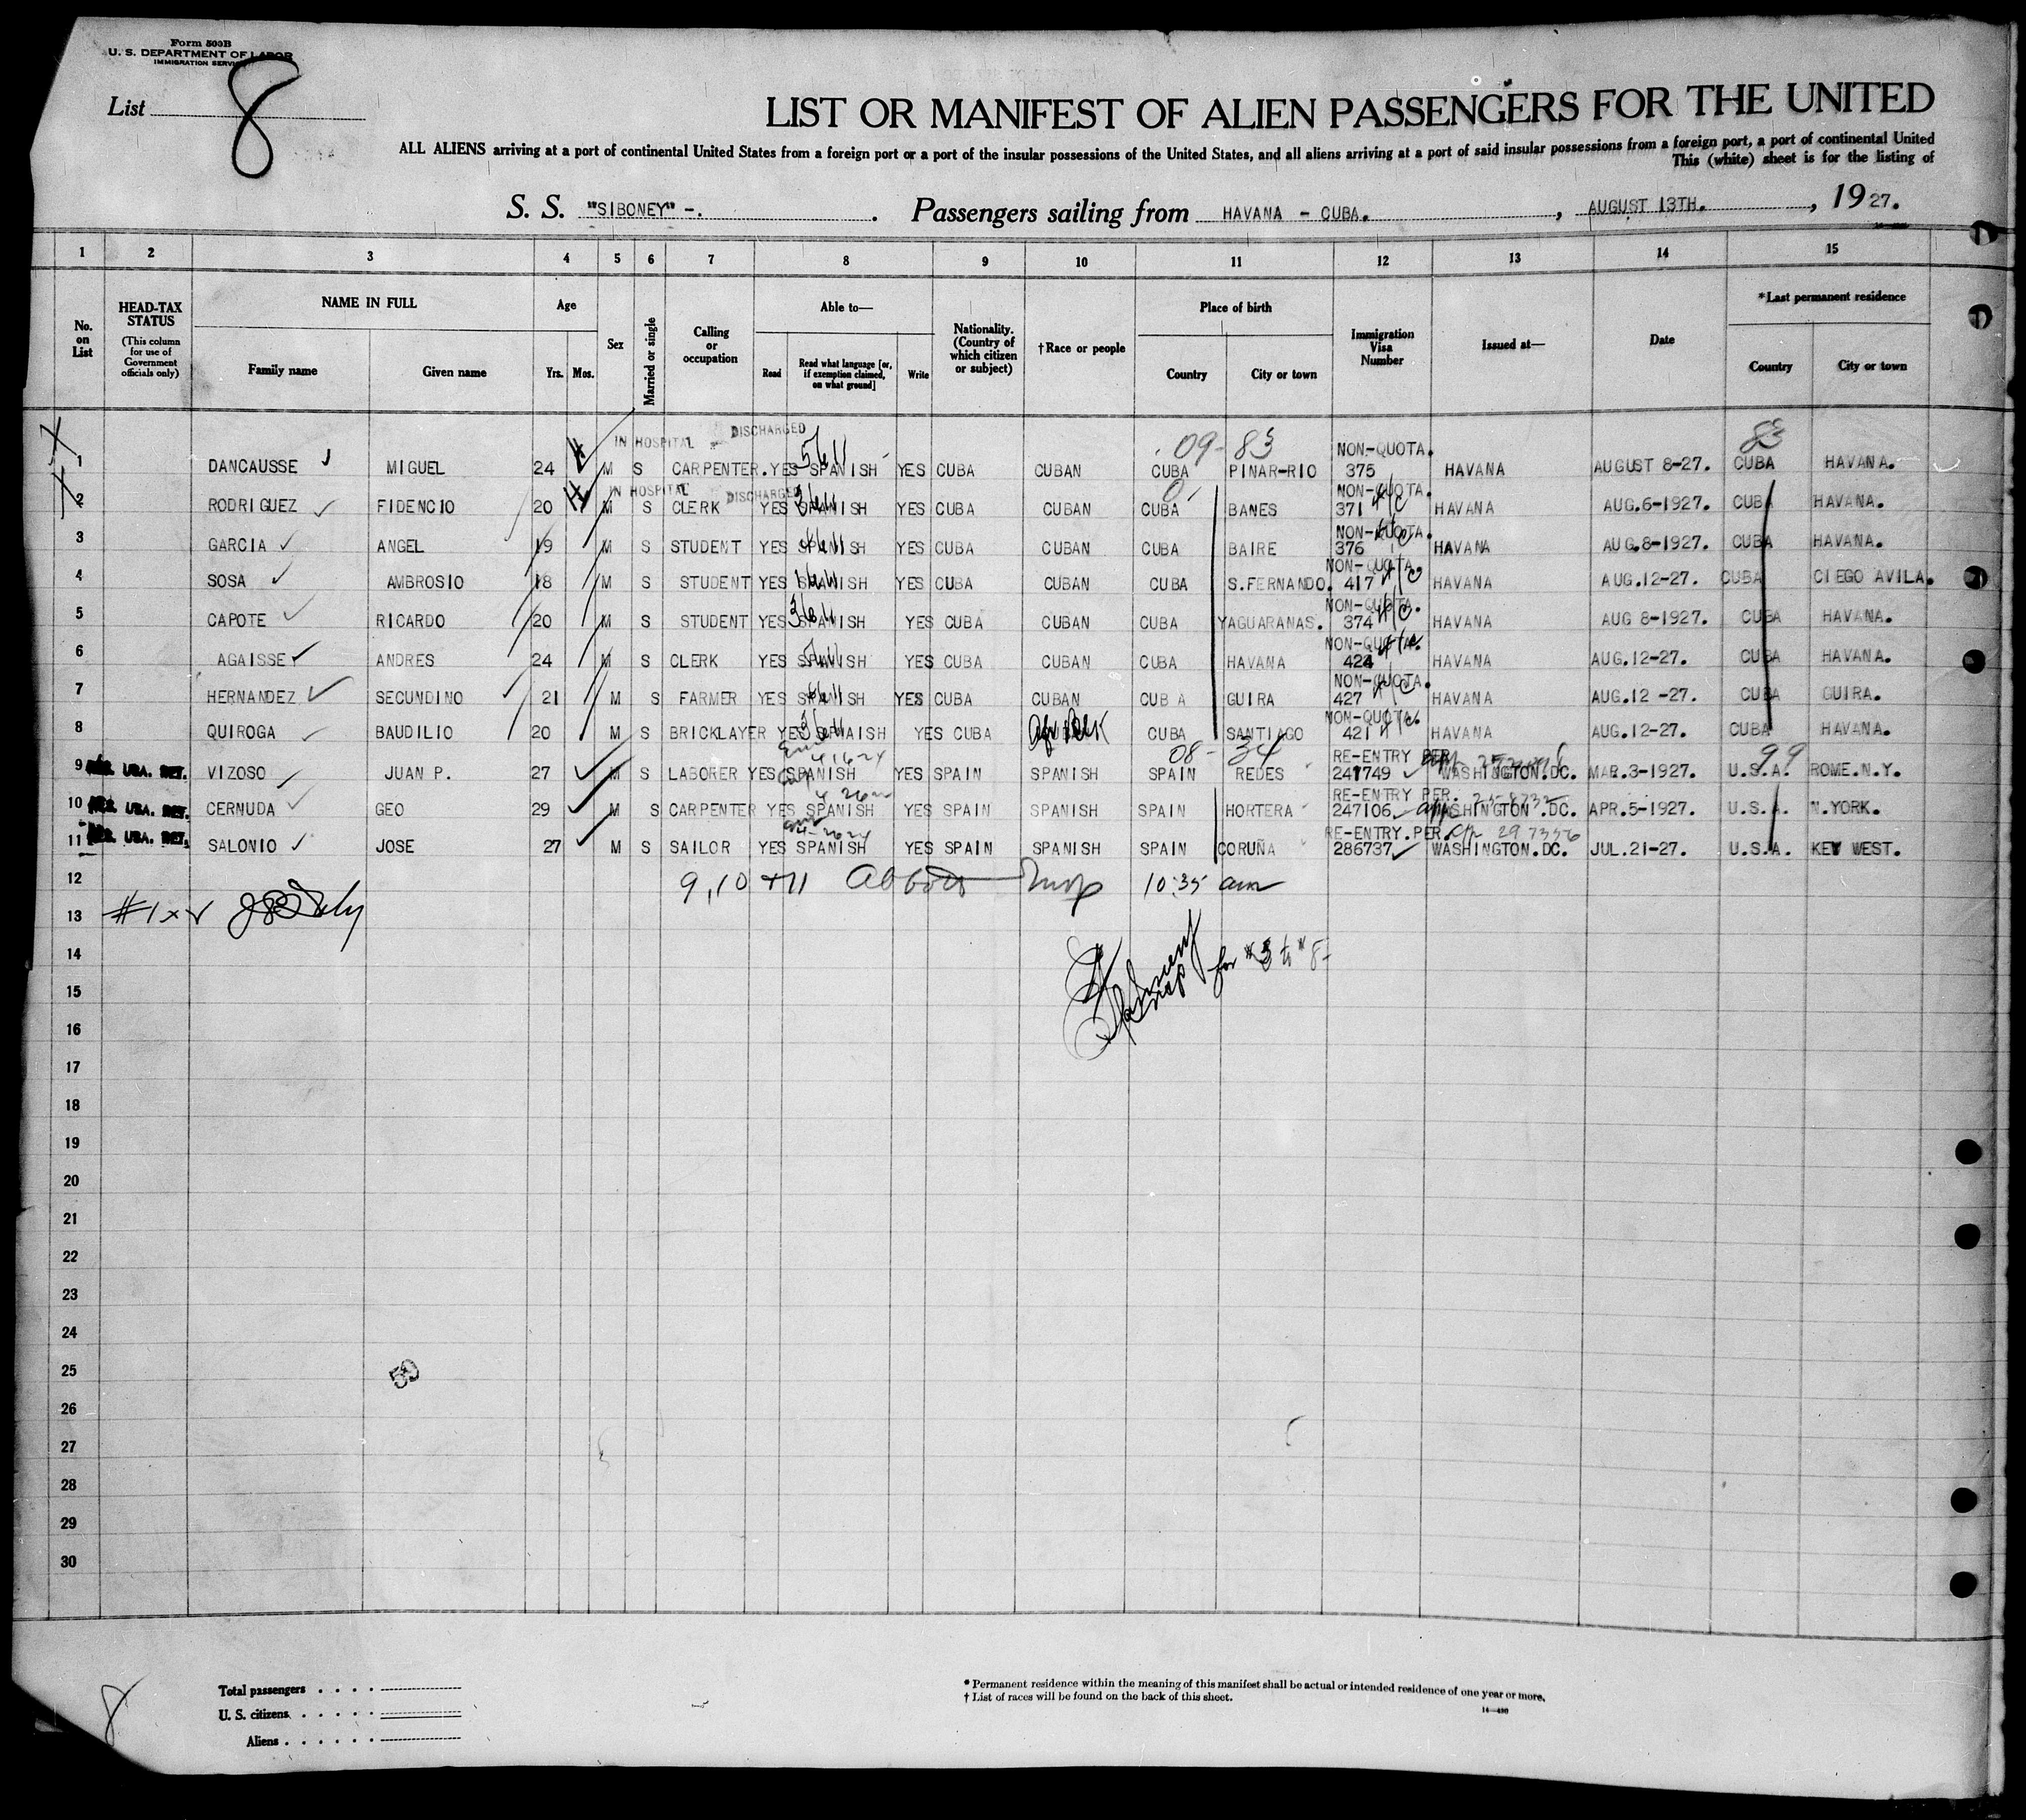 Form 500B
U. S. DEPARTMENT OF LABOR
IMMIGRATION SERVICE
List 8
LIST OR MANIFEST OF ALIEN PASSENGERS FOR THE UNITED
ALL ALIENS arriving at a port of continental United States from a foreign port or a port of the insular possessions of the United States, and all aliens arriving at a port of said insular possessions from a foreign port, a port of continental United
This (white) sheet is for the listing of
S. S. "SIBONEY" -. Passengers sailing from HAVANA - CUBA. , AUGUST 13TH. , 1927.
1 2 3 4 5 6 7 8 9 10 11 12 13 14 15
No. on List
HEAD-TAX STATUS
(This column for use of Government officials only)
NAME IN FULL
Family name
Given name
Age
Yrs. Mos.
Sex
Married or single
Calling or occupation
Able to—
Read
Read what language [or, if exemption claimed, on what ground]
Write
Nationality. (Country of which citizen or subject)
†Race or people
Place of birth
Country
City or town
Immigration Visa Number
Issued at—
Date
*Last permanent residence
Country
City or town
IN HOSPITAL DISCHARGED 09- 83 NON-QUOTA. 83
1 DANCAUSSE MIGUEL 24 M S CARPENTER. YES SPANISH YES CUBA CUBAN CUBA PINAR-RIO 375 HAVANA AUGUST 8-27. CUBA HAVANA.
IN HOSPITAL DISCHARGED NON-QUOTA.
2 RODRIGUEZ FIDENCIO 20 M S CLERK YES SPANISH YES CUBA CUBAN CUBA BANES 371 HAVANA AUG.6-1927. CUBA HAVANA.
NON-QUOTA.
3 GARCIA ANGEL 19 M S STUDENT YES SPANISH YES CUBA CUBAN CUBA BAIRE 376 HAVANA AUG.8-1927. CUBA HAVANA.
NON-QUOTA.
4 SOSA AMBROSIO 18 M S STUDENT YES SPANISH YES CUBA CUBAN CUBA S.FERNANDO. 417 HAVANA AUG.12-27. CUBA CIEGO AVILA.
NON-QUOTA.
5 CAPOTE RICARDO 20 M S STUDENT YES SPANISH YES CUBA CUBAN CUBA YAGUARANAS. 374 HAVANA AUG 8-1927. CUBA HAVANA.
NON-QUOTA.
6 AGAISSE ANDRES 24 M S CLERK YES SPANISH YES CUBA CUBAN CUBA HAVANA 424 HAVANA AUG.12-27. CUBA HAVANA.
NON-QUOTA.
7 HERNANDEZ SECUNDINO 21 M S FARMER YES SPANISH YES CUBA CUBAN CUBA GUIRA 427 HAVANA AUG.12 -27. CUBA GUIRA.
NON-QUOTA.
8 QUIROGA BAUDILIO 20 M S BRICKLAYER YES SPNAISH YES CUBA CUBA SANTIAGO 421 HAVANA AUG.12-27. CUBA HAVANA.
41624 08- 34 RE-ENTRY PER. 99
9 USA. RET. VIZOSO JUAN P. 27 M S LABORER YES SPANISH YES SPAIN SPANISH SPAIN REDES 241749 WASHINGTON.DC. MAR.3-1927. U.S.A. ROME.N.Y.
RE-ENTRY PER.
10 USA. RET. CERNUDA GEO 29 M S CARPENTER YES SPANISH YES SPAIN SPANISH SPAIN HORTERA 247106 WASHINGTON.DC. APR.5-1927. U.S.A. N.YORK.
RE-ENTRY.PER.
11 USA. RET. SALONIO JOSE 27 M S SAILOR YES SPANISH YES SPAIN SPANISH SPAIN CORUÑA 286737 WASHINGTON.DC. JUL.21-27. U.S.A. KEY WEST.
12 9,10 +11 Abbott Insp 10:35 am
13
14
15
16
17
18
19
20
21
22
23
24
25
26
27
28
29
30
Total passengers
U. S. citizens
Aliens
* Permanent residence within the meaning of this manifest shall be actual or intended residence of one year or more.
† List of races will be found on the back of this sheet.
14—490
8